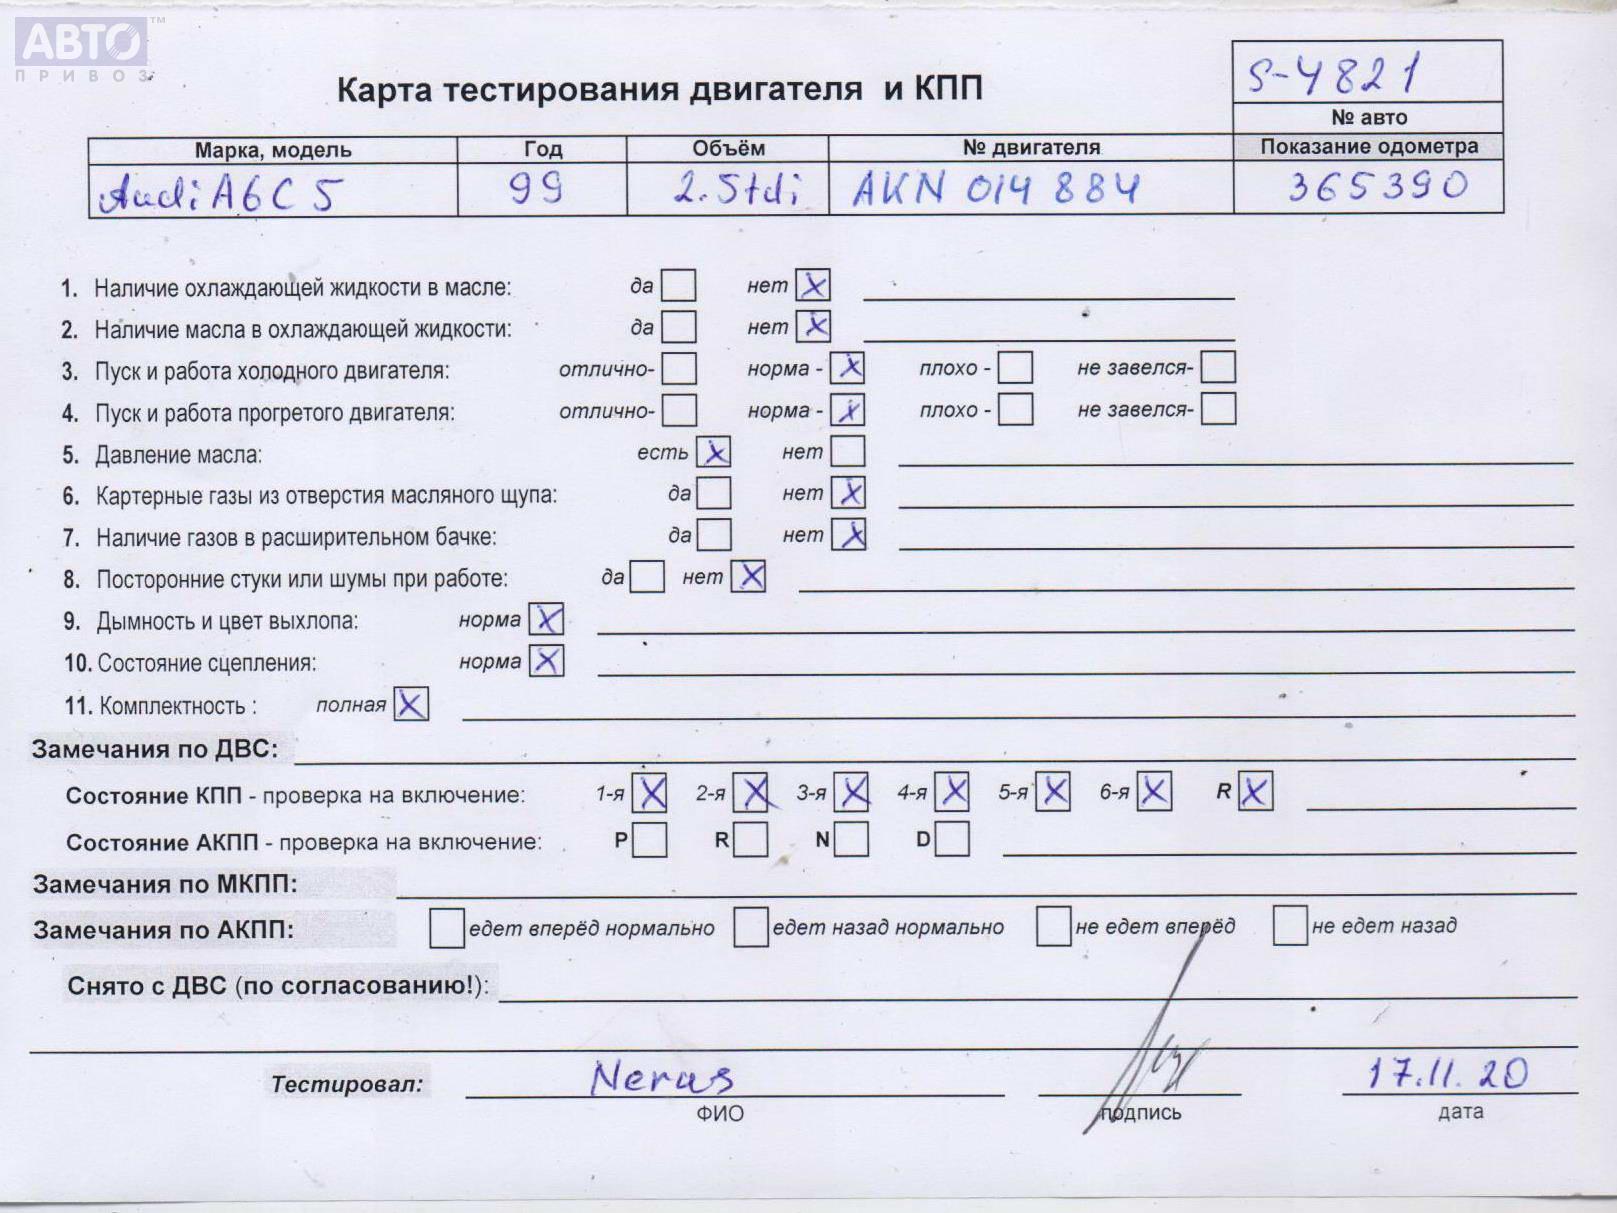 АВТО™
ПРИВОЗ
S-4821
Карта тестирования двигателя и КПП
№ авто
Марка, модель Год Объём № двигателя Показание одометра
Audi A6C5 99 2.5tdi AKN 014 884 365390
1. Наличие охлаждающей жидкости в масле: да нет X
2. Наличие масла в охлаждающей жидкости: да нет X
3. Пуск и работа холодного двигателя: отлично- норма - X плохо - не завелся-
4. Пуск и работа прогретого двигателя: отлично- норма - X плохо - не завелся-
5. Давление масла: есть X нет
6. Картерные газы из отверстия масляного щупа: да нет X
7. Наличие газов в расширительном бачке: да нет X
8. Посторонние стуки или шумы при работе: да нет X
9. Дымность и цвет выхлопа: норма X
10. Состояние сцепления: норма X
11. Комплектность : полная X
Замечания по ДВС:
Состояние КПП - проверка на включение: 1-я X 2-я X 3-я X 4-я X 5-я X 6-я X R X
Состояние АКПП - проверка на включение: P R N D
Замечания по МКПП:
Замечания по АКПП: едет вперёд нормально едет назад нормально не едет вперёд не едет назад
Снято с ДВС (по согласованию!):
Тестировал: Neras 17.11.20
ФИО подпись дата